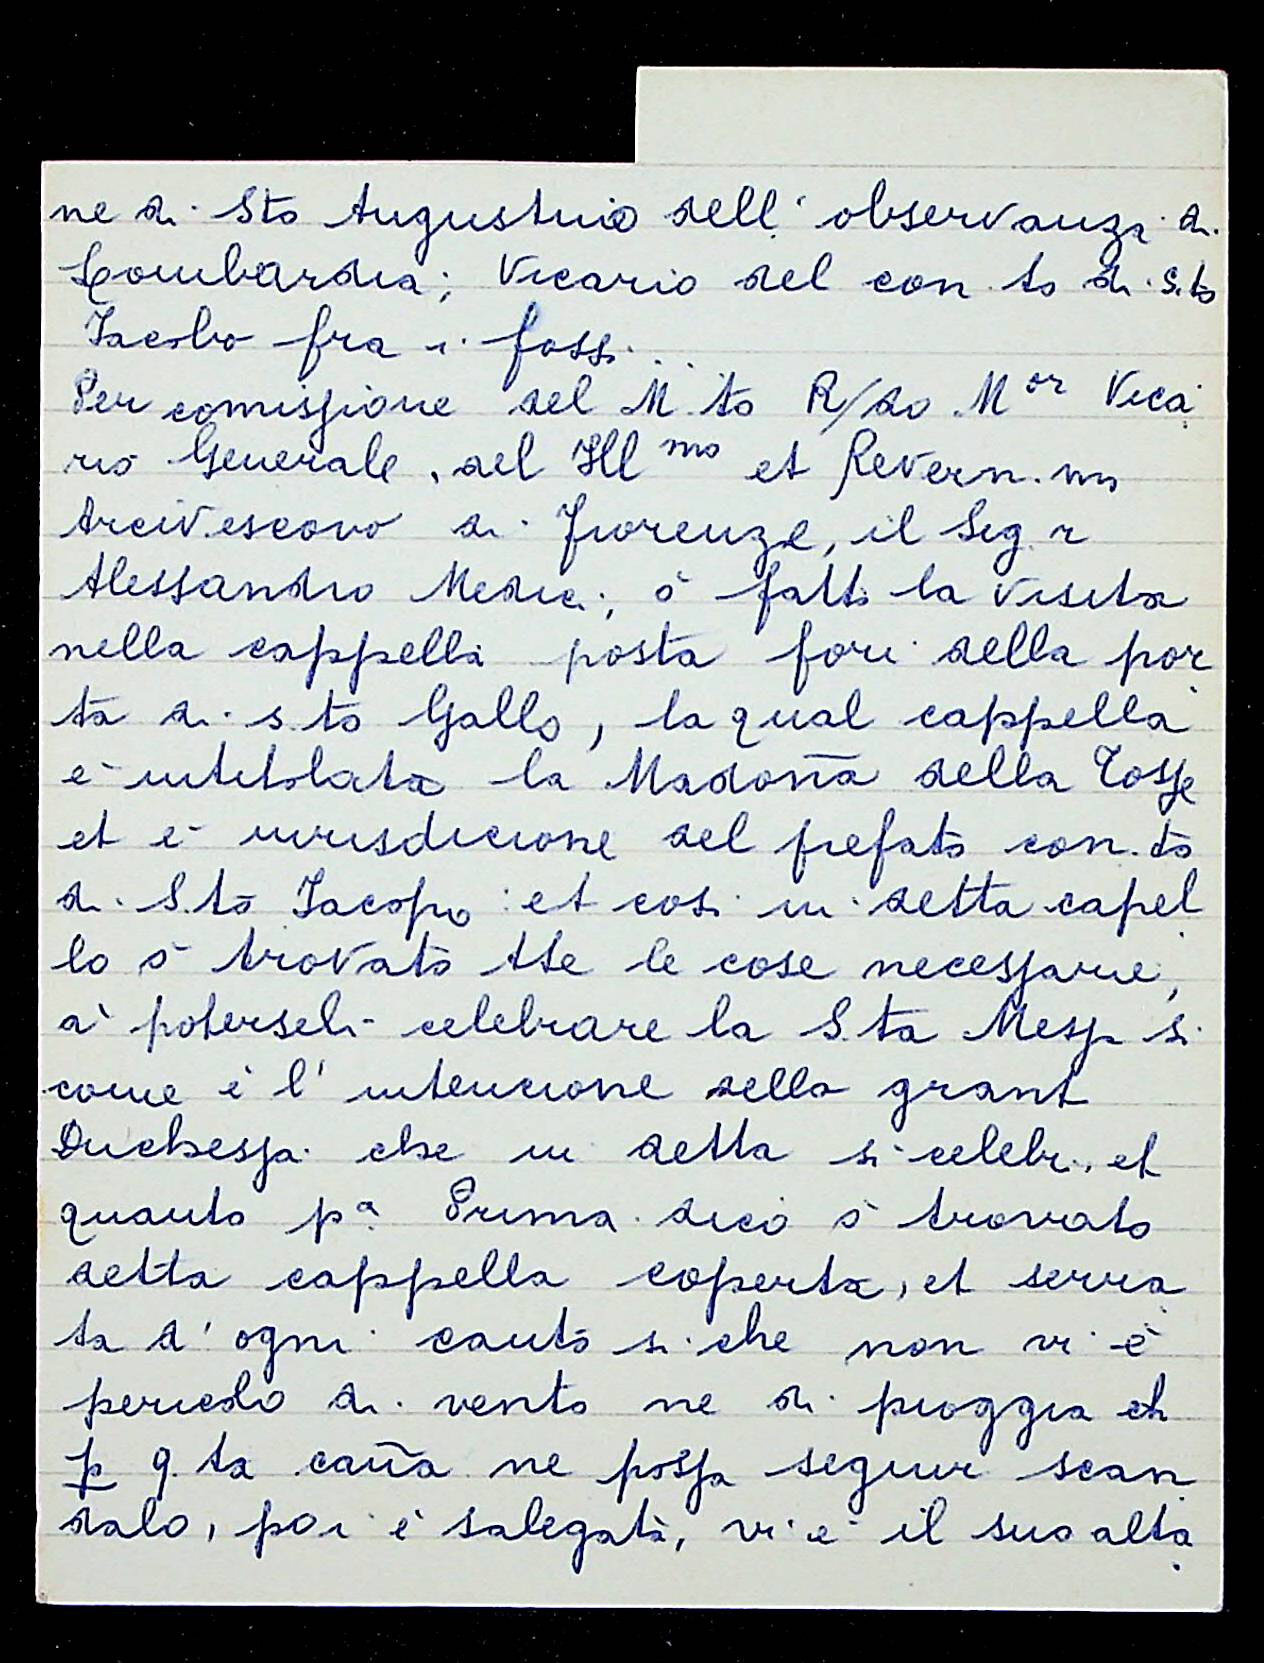 ne di Sto Augustino dell' observanza di
Lombardia; Vicario del con.to di S.to
Jacobo fra i fossi...
Per comissione del M.to R/do M^or Vica
rio Generale, del Ill^mo et Revern.mo
Arcivescovo di Fiorenze, il Sig.r
Alessandro Medici, ò fatto la visita
nella cappella posta fori della por
ta di s.to Gallo, la qual cappella
è intitolata la Madoña della Tosse
et è iurisdicione del prefato con.to
di S.to Jacopo: et così in detta capel
lo ò trovato tte le cose necessarie,
a' poterseli celebrare la S.ta Messa si
come è l' intencione della grant
Duchessa che in detta si celebri, et
quanto p^a Prima dico ò trovato
detta cappella coperta, et serra
ta d' ogni canto si che non vi è
pericolo di vento ne di pioggia ch
p q.ta cauña ne possa seguir scan
dalo, poi è salegata, vi è il suo alta